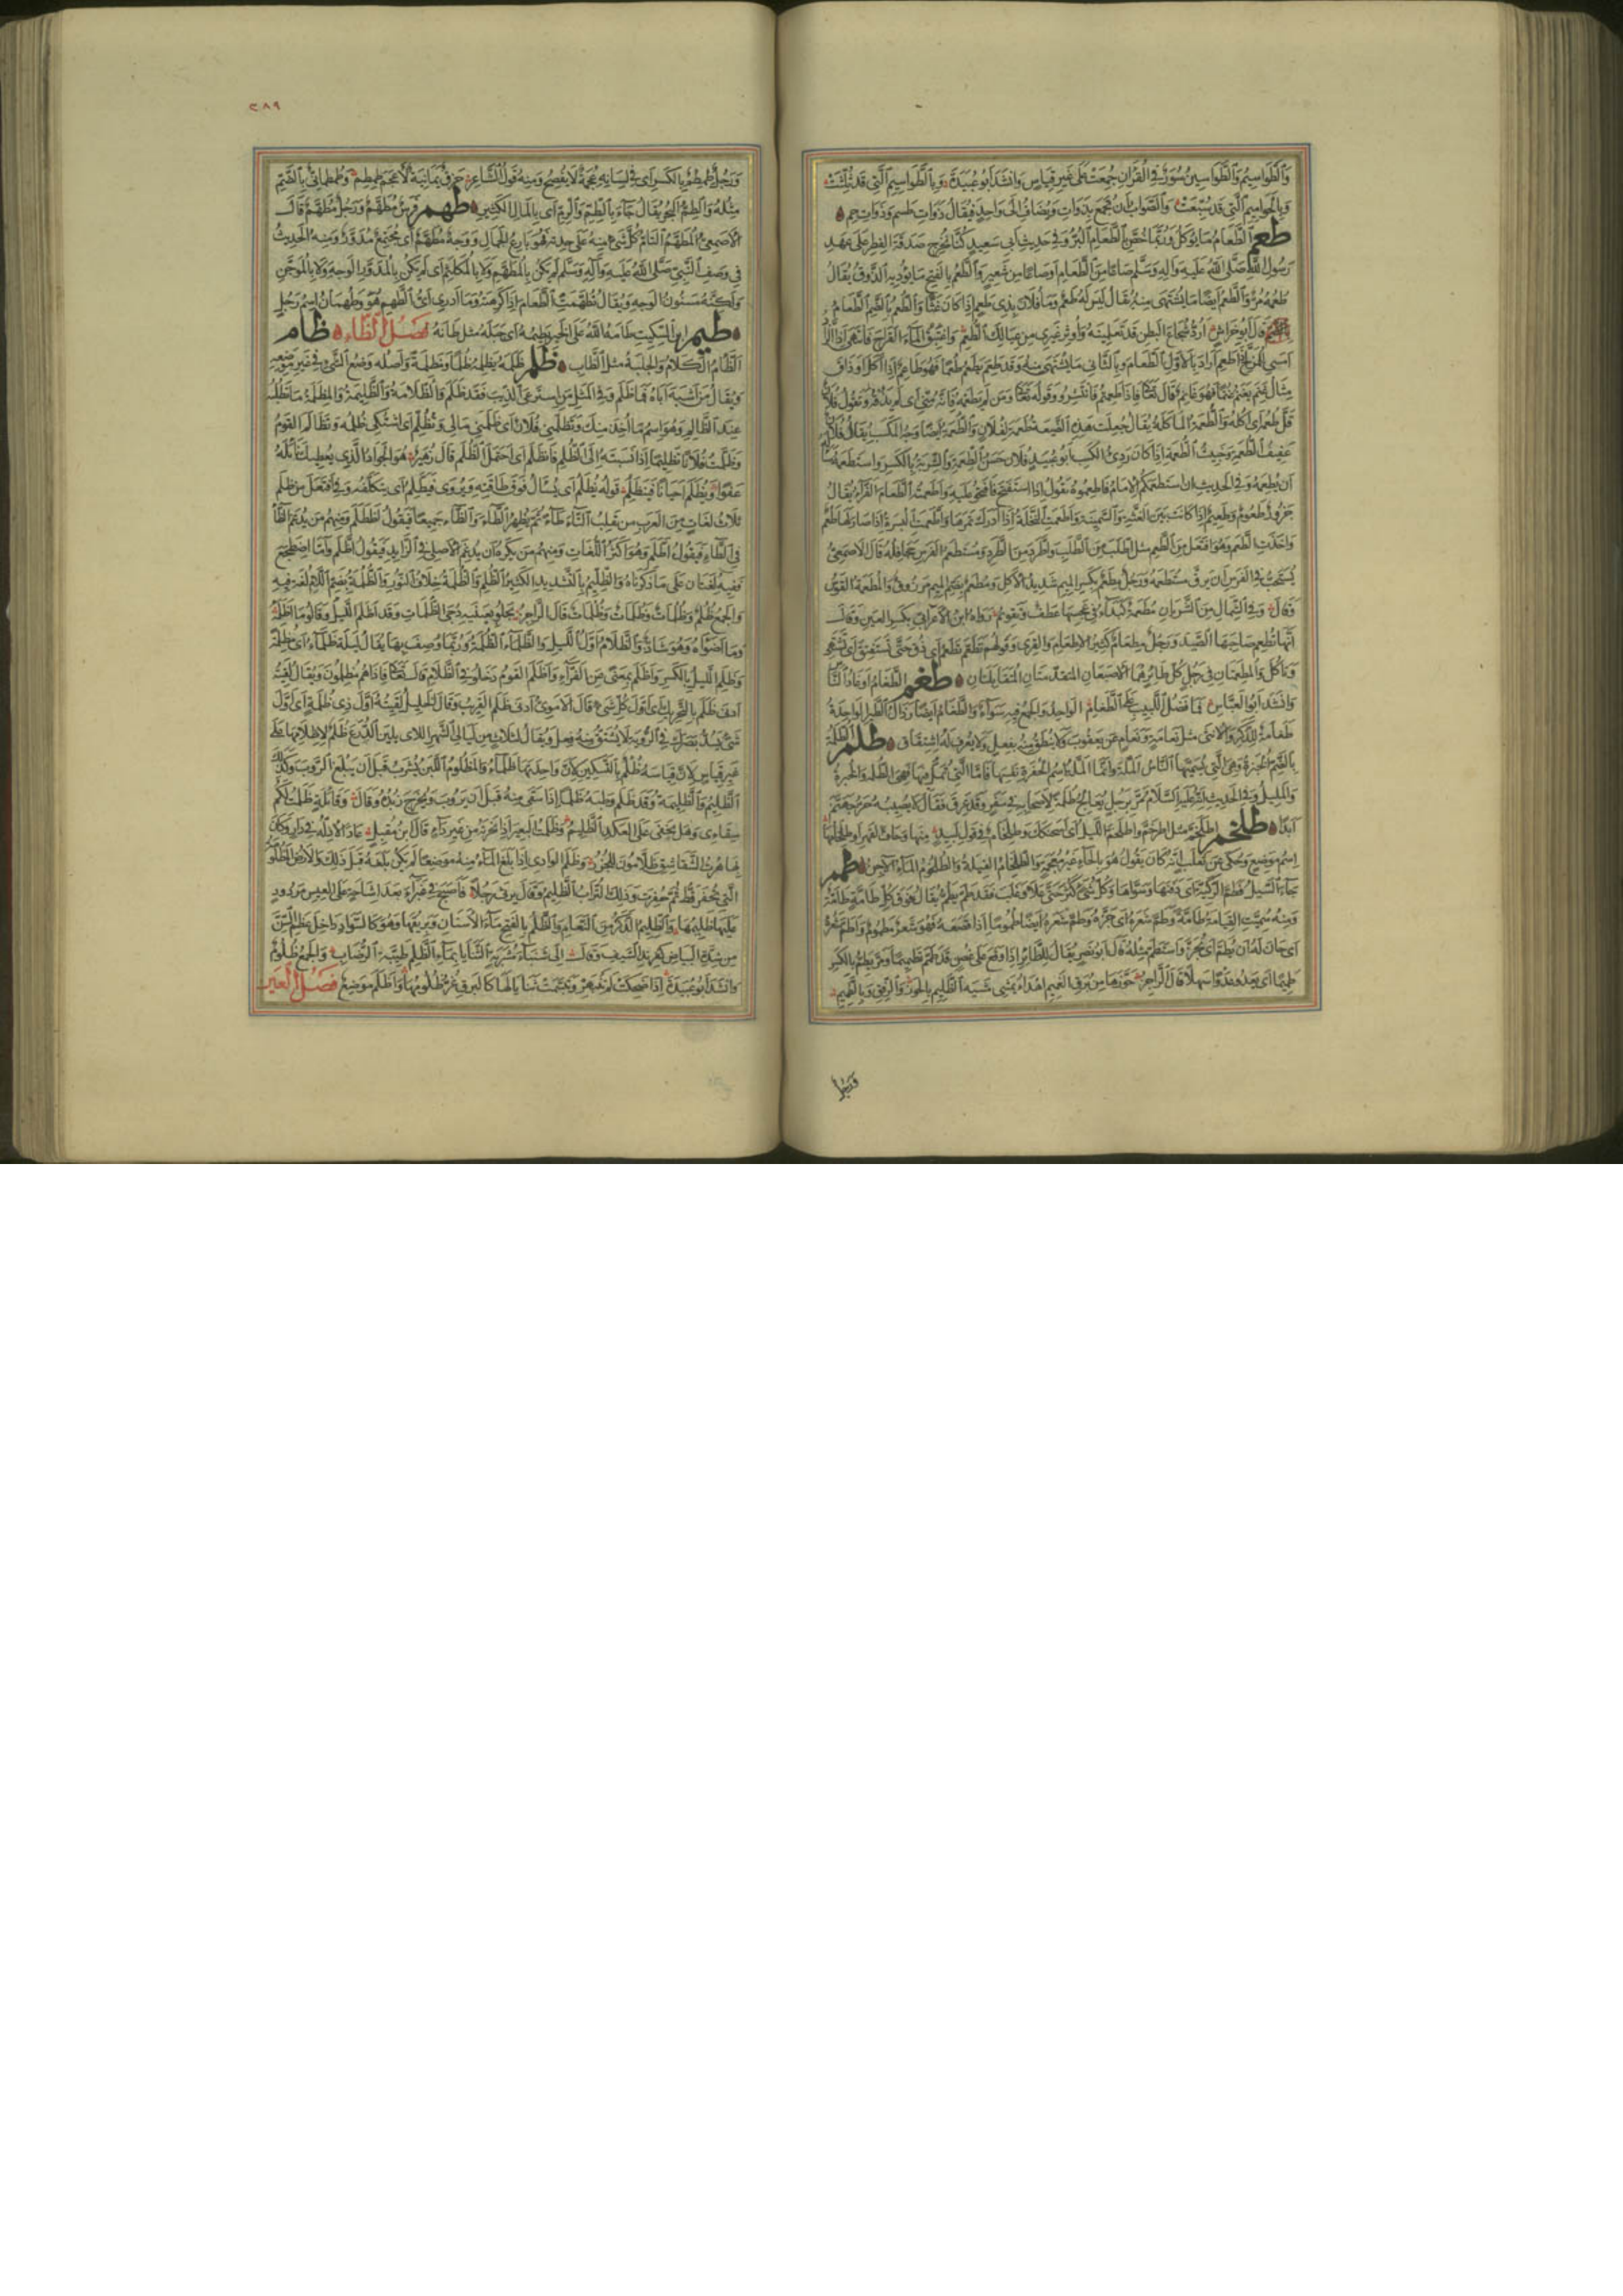 وَالطَّوَاسِيمُ وَالطَّوَاسِينُ سُوَرٌ فِي الْقُرْآنِ جُمِعَتْ عَلَى غَيْرِ قِيَاسٍ وَانْشَدَ اَبُوعُبَيْدَةَ وَبِالطَّوَاسِيمِ الَّتِي قَدْ ثُلِّثَتْ
وَبِالْحَوَامِيمِ الَّتِي قَدْ سُبِّعَتْ وَالصَّوَابُ اَنْ تُجْمَعَ بِذَوَاتِ وَيُضَافُ اِلَى وَاحِدٍ فَيُقَالُ ذَوَاتُ طسم وَذَوَاتُ حم
طعم الطَّعَامُ مَا يُؤْكَلُ وَرُبَّمَا خُصَّ بِالطَّعَامِ الْبُرُّ وَفِي حَدِيثِ اَبِي سَعِيدٍ كُنَّا نُخْرِجُ صَدَقَةَ الْفِطْرِ عَلَى عَهْدِ
رَسُولِ اللهِ صَلَّى اللهُ عَلَيْهِ وَآلِهِ وَسَلَّمَ صَاعًا مِنَ الطَّعَامِ اَوْ صَاعًا مِنْ شَعِيرٍ وَالطَّعْمُ بِالْفَتْحِ مَا يُؤَدِّيهِ الذَّوْقُ يُقَالُ
طَعْمُهُ مُرٌّ وَالطَّعْمُ اَيْضًا مَا يُشْتَهَى مِنْهُ يُقَالُ لَيْسَ لَهُ طَعْمٌ وَمَا فُلَانٌ بِذِي طَعْمٍ اِذَا كَانَ غَثًّا وَالطُّعْمُ بِالضَّمِّ الطَّعَامُ
قَالَ اَبُوخِرَاشٍ اَرُدُّ شُجَاعَ الْبَطْنِ قَدْ تَعْلَمِينَهُ وَاُوثِرُ غَيْرِي مِنْ عِيَالِكِ بِالطُّعْمِ وَاَغْتَبِقُ الْمَاءَ الْقَرَاحَ فَاَنْتَهِي اِذَا الزَّادُ
اَمْسَى لِلْمُزَلَّجِ ذَا طَعْمِ اَرَادَ بِالْاَوَّلِ الطَّعَامَ وَبِالثَّانِي مَا يُشْتَهَى مِنْهُ وَقَدْ طَعِمَ يَطْعَمُ طُعْمًا فَهُوَ طَاعِمٌ اِذَا اَكَلَ اَوْ ذَاقَ
مِثَالُ غَنِمَ يَغْنَمُ غُنْمًا فَهُوَ غَانِمٌ قَالَ تَعَالَى فَاِذَا طَعِمْتُمْ فَانْتَشِرُوا وَقَوْلُهُ تَعَالَى وَمَنْ لَمْ يَطْعَمْهُ فَاِنَّهُ مِنِّي اَيْ لَمْ يَذُقْهُ وَتَقُولُ فُلَانٌ
قَلَّ طُعْمُهُ اَيْ اَكْلُهُ وَالطُّعْمَةُ الْمَأْكَلَةُ يُقَالُ جَعَلْتُ هَذِهِ الضَّيْعَةَ طُعْمَةً لِفُلَانٍ وَالطُّعْمَةُ اَيْضًا وَجْهُ الْمَكْسَبِ يُقَالُ فُلَانٌ
عَفِيفُ الطُّعْمَةِ وَخَبِيثُ الطُّعْمَةِ اِذَا كَانَ رَدِيَّ الْكَسْبِ اَبُوعُبَيْدٍ فُلَانٌ حَسَنُ الطِّعْمَةِ وَالشِّرْبَةِ بِالْكَسْرِ وَاسْتَطْعَمَهُ سَأَلَهُ
اَنْ يُطْعِمَهُ وَفِي الْحَدِيثِ اِنِ اسْتَطْعَمَكُمُ الْاِمَامُ فَاَطْعِمُوهُ يَقُولُ اِذَا اسْتَفْتَحَ فَافْتَحُوا عَلَيْهِ وَاَطْعَمْتُهُ الطَّعَامَ الْفَرَّاءُ يُقَالُ
جَزُورٌ طَعُومٌ وَطَعِيمٌ اِذَا كَانَتْ بَيْنَ الْغَثَّةِ وَالسَّمِينَةِ وَاَطْعَمَتِ النَّخْلَةُ اِذَا اَدْرَكَ ثَمَرُهَا وَاَطْعَمَتِ الْبُسْرَةُ اِذَا صَارَ لَهَا طَعْمٌ
وَاَخَذَتِ الطَّعْمَ وَهُوَ افْتَعَلَ مِنَ الطَّعْمِ مِثْلُ اطَّلَبَ مِنَ الطَّلَبِ وَاطَّرَدَ مِنَ الطَّرْدِ وَمُسْتَطْعَمُ الْفَرَسِ جَحَافِلُهُ قَالَ الْاَصْمَعِيُّ
يُسْتَحَبُّ فِي الْفَرَسِ اَنْ يَرِقَّ مُسْتَطْعَمُهُ وَرَجُلٌ مِطْعَمٌ بِكَسْرِ الْمِيمِ شَدِيدُ الْاَكْلِ وَمُطْعَمٌ بِضَمِّ الْمِيمِ مَرْزُوقٌ وَالْمُطْعَمَةُ الْقَوْسُ
وَقَالَ وَفِي الشِّمَالِ مِنَ الشِّرْيَانِ مُطْعَمَةٌ كَبْدَاءُ فِي عَجْسِهَا عَطْفٌ وَتَقْوِيمُ رَوَاهُ ابْنُ الْاَعْرَابِيِّ بِكَسْرِ الْعَيْنِ وَقَالَ
اِنَّهَا تُطْعِمُ صَاحِبَهَا الصَّيْدَ وَرَجُلٌ مِطْعَامٌ كَثِيرُ الْاِطْعَامِ وَالْقِرَى وَقَوْلُهُمْ تَطَعَّمْ تَطْعَمْ اَيْ ذُقْ حَتَّى تَسْتَفِيقَ اَيْ تَشْتَهِيَ
وَتَأْكُلَ وَالْمُطْعِمَتَانِ فِي رِجْلِ كُلِّ طَائِرٍ هُمَا الْاِصْبَعَانِ الْمُتَقَدِّمَتَانِ الْمُتَقَابِلَتَانِ طغم الطَّغَامُ اَوْغَادُ النَّاسِ
وَانْشَدَ اَبُو الْعَبَّاسِ فَمَا فَضْلُ اللَّبِيبِ عَلَى الطَّغَامِ الْوَاحِدُ وَالْجَمْعُ فِيهِ سَوَاءٌ وَالطَّغَامُ اَيْضًا رُذَالُ الطَّيْرِ الْوَاحِدَةُ
طَغَامَةٌ لِلذَّكَرِ وَالْاُنْثَى مِثْلُ نَعَامَةٍ وَنَعَامٍ عَنْ يَعْقُوبَ وَلَا يُنْطَقُ مِنْهُ بِفِعْلٍ وَلَا يُعْرَفُ لَهُ اشْتِقَاقٌ طلم الطُّلْمَةُ
بِالضَّمِّ الْخُبْزَةُ وَهِيَ الَّتِي يُسَمِّيهَا النَّاسُ الْمَلَّةَ وَاِنَّمَا الْمَلَّةُ اسْمُ الْحُفْرَةِ نَفْسِهَا فَاَمَّا الَّتِي تُمَلُّ فِيهَا فَهِيَ الطُّلْمَةُ وَالْخُبْزَةُ
وَالْمَلِيلُ وَفِي الْحَدِيثِ اَنَّهُ عَلَيْهِ السَّلَامُ مَرَّ بِرَجُلٍ يُعَالِجُ طُلْمَةً لِاَصْحَابِهِ فِي سَفَرٍ وَقَدْ عَرِقَ فَقَالَ لَا يُصِيبُهُ حَرُّ جَهَنَّمَ
اَبَدًا طلخم اطْلَخَمَّ مِثْلُ اطْرَخَمَّ وَاطْلَخَمَّ اللَّيْلُ اَيْ اسْحَنْكَكَ وَطِلْخَامُ فِي قَوْلِ لَبِيدٍ مِنْهَا وِحَافُ الْقَهْرِ اَوْ طِلْخَامُهَا
اسْمُ مَوْضِعٍ وَحُكِيَ عَنْ ثَعْلَبٍ اَنَّهُ كَانَ يَقُولُ هُوَ بِالْحَاءِ غَيْرَ مُعْجَمَةٍ وَالطِّلْخَامُ الْفِيلَةُ وَالطُّلْخُومُ الْمَاءُ الْآجِنُ طمم
جَاءَ السَّيْلُ فَطَمَّ الرَّكِيَّةَ اَيْ دَفَنَهَا وَسَوَّاهَا وَكُلُّ شَيْءٍ كَثُرَ حَتَّى عَلَا وَغَلَبَ فَقَدْ طَمَّ يَطِمُّ يُقَالُ فَوْقَ كُلِّ طَامَّةٍ طَامَّةٌ
وَمِنْهُ سُمِّيَتِ الْقِيَامَةُ طَامَّةً وَطَمَّ شَعْرَهُ اَيْ جَزَّهُ وَطَمَّ شَعْرَهُ اَيْضًا طُمُومًا اِذَا عَقَصَهُ فَهُوَ شَعْرٌ مَطْمُومٌ وَاَطَمَّ شَعْرُهُ
اَيْ حَانَ لَهُ اَنْ يُطَمَّ اَيْ يُجَزَّ وَاسْتَطَمَّ مِثْلُهُ قَالَ اَبُونَصْرٍ يُقَالُ لِلطَّائِرِ اِذَا وَقَعَ عَلَى غُصْنٍ قَدْ طَمَّمَ تَطْمِيمًا وَمَرَّ يَطِمُّ بِالْكَسْرِ
طَمِيمًا اَيْ يَعْدُو عَدْوًا سَهْلًا قَالَ الرَّاجِزُ حَوَّزَهَا مِنْ بُرَقِ الْغَمِيمِ اَهْدَأُ يَمْشِي مِشْيَةَ الظَّلِيمِ بِالْحَوْزِ وَالرِّفْقِ وَبِالطَّمِيمِ
وَرَجُلٌ
٢٨٩
وَرَجُلٌ طِمْطِمٌ بِالْكَسْرِ اَيْ فِي لِسَانِهِ عُجْمَةٌ لَا يُفْصِحُ وَمِنْهُ قَوْلُ الشَّاعِرِ حِزَقٌ يَمَانِيَةٌ لِاَعْجَمَ طِمْطِمِ وَطُمْطُمَانِيٌّ بِالضَّمِّ
مِثْلُهُ وَالطِّمُّ الْبَحْرُ يُقَالُ جَاءَ بِالطِّمِّ وَالرِّمِّ اَيْ بِالْمَالِ الْكَثِيرِ طهم فَرَسٌ مُطَهَّمٌ وَرَجُلٌ مُطَهَّمٌ قَالَ
الْاَصْمَعِيُّ الْمُطَهَّمُ التَّامُّ كُلُّ شَيْءٍ مِنْهُ عَلَى حِدَتِهِ فَهُوَ بَارِعُ الْجَمَالِ وَوَجْهٌ مُطَهَّمٌ اَيْ مُجْتَمِعٌ مُدَوَّرٌ وَمِنْهُ الْحَدِيثُ
فِي وَصْفِ النَّبِيِّ صَلَّى اللهُ عَلَيْهِ وَآلِهِ وَسَلَّمَ لَمْ يَكُنْ بِالْمُطَهَّمِ وَلَا بِالْمُكَلْثَمِ اَيْ لَمْ يَكُنْ بِالْمُدَوَّرِ الْوَجْهِ وَلَا بِالْمُوَجَّنِ
وَلَكِنَّهُ مَسْنُونُ الْوَجْهِ وَيُقَالُ تَطَهَّمْتُ الطَّعَامَ اِذَا كَرِهْتَهُ وَمَا اَدْرِي اَيُّ الطَّهْمِ هُوَ وَطَهْمَانُ اسْمُ رَجُلٍ
طيم ابْنُ السِّكِّيتِ طَامَهُ اللهُ عَلَى الْخَيْرِ يَطِيمُهُ اَيْ جَبَلَهُ مِثْلُ طَانَهُ فَصْلُ الظَّاءِ ظام
الظَّأْمُ الْكَلَامُ وَالْجَلَبَةُ مِثْلُ الظَّأْبِ ظلم ظَلَمَهُ يَظْلِمُهُ ظُلْمًا وَمَظْلِمَةً وَاَصْلُهُ وَضْعُ الشَّيْءِ فِي غَيْرِ مَوْضِعِهِ
وَيُقَالُ مَنْ اَشْبَهَ اَبَاهُ فَمَا ظَلَمَ وَفِي الْمَثَلِ مَنِ اسْتَرْعَى الذِّئْبَ فَقَدْ ظَلَمَ وَالظُّلَامَةُ وَالظَّلِيمَةُ وَالْمَظْلِمَةُ مَا تَطْلُبُهُ
عِنْدَ الظَّالِمِ وَهُوَ اسْمُ مَا اُخِذَ مِنْكَ وَتَظَلَّمَنِي فُلَانٌ اَيْ ظَلَمَنِي مَالِي وَتَظَلَّمَ اَيْ اشْتَكَى ظُلْمَهُ وَتَظَالَمَ الْقَوْمُ
وَظَلَّمْتُ فُلَانًا تَظْلِيمًا اِذَا نَسَبْتَهُ اِلَى الظُّلْمِ فَانْظَلَمَ اَيْ احْتَمَلَ الظُّلْمَ قَالَ زُهَيْرٌ هُوَ الْجَوَادُ الَّذِي يُعْطِيكَ نَائِلَهُ
عَفْوًا وَيُظْلَمُ اَحْيَانًا فَيَنْظَلِمُ قَوْلُهُ يُظْلَمُ اَيْ يُسْأَلُ فَوْقَ طَاقَتِهِ وَيُرْوَى فَيَظَّلِمُ اَيْ يَتَكَلَّفُهُ وَفِي افْتَعَلَ مِنْ ظَلَمَ
ثَلَاثُ لُغَاتٍ مِنَ الْعَرَبِ مَنْ يَقْلِبُ التَّاءَ طَاءً ثُمَّ يُظْهِرُ الطَّاءَ وَالظَّاءَ جَمِيعًا فَيَقُولُ اظْطَلَمَ وَمِنْهُمْ مَنْ يُدْغِمُ الظَّاءَ
فِي الطَّاءِ فَيَقُولُ اطَّلَمَ وَهُوَ اَكْثَرُ اللُّغَاتِ وَمِنْهُمْ مَنْ يَكْرَهُ اَنْ يُدْغِمَ الْاَصْلِيَّ فِي الزَّائِدِ فَيَقُولُ اظَّلَمَ وَاَمَّا اضْطَجَعَ
فَفِيهِ لُغَتَانِ عَلَى مَا ذَكَرْنَاهُ وَالظِّلِّيمُ بِالتَّشْدِيدِ الْكَثِيرُ الظُّلْمِ وَالظُّلْمَةُ خِلَافُ النُّورِ وَالظُّلُمَةُ بِضَمِّ اللَّامِ لُغَةٌ فِيهِ
وَالْجَمْعُ ظُلَمٌ وَظُلُمَاتٌ وَظُلَمَاتٌ وَظُلْمَاتٌ قَالَ الرَّاجِزُ يَجْلُو بِعَيْنَيْهِ دُجَى الظُّلْمَاتِ وَقَدْ اَظْلَمَ اللَّيْلُ وَقَالُوا مَا اَظْلَمَهُ
وَمَا اَضْوَأَهُ وَهُوَ شَاذٌّ وَالظَّلَامُ اَوَّلُ اللَّيْلِ وَالظَّلْمَاءُ الظُّلْمَةُ وَرُبَّمَا وُصِفَ بِهَا يُقَالُ لَيْلَةٌ ظَلْمَاءُ اَيْ مُظْلِمَةٌ
وَظَلِمَ اللَّيْلُ بِالْكَسْرِ وَاَظْلَمَ بِمَعْنًى عَنِ الْفَرَّاءِ وَاَظْلَمَ الْقَوْمُ دَخَلُوا فِي الظَّلَامِ قَالَ تَعَالَى فَاِذَا هُمْ مُظْلِمُونَ وَيُقَالُ لَقِيتُهُ
اَدْنَى ظَلَمٍ بِالتَّحْرِيكِ اَيْ اَوَّلَ كُلِّ شَيْءٍ قَالَ الْاُمَوِيُّ اَدْنَى ظَلَمٍ الْقَرِيبُ وَقَالَ الْخَلِيلُ لَقِيتُهُ اَوَّلَ ذِي ظُلْمَةٍ اَيْ اَوَّلَ
شَيْءٍ يَسُدُّ بَصَرَكَ فِي الرُّؤْيَةِ لَا يُشْتَقُّ مِنْهُ فِعْلٌ وَيُقَالُ لِثَلَاثٍ مِنْ لَيَالِي الشَّهْرِ اللَّائِي يَلِينَ الدُّرَعَ ظُلَمٌ لِاِظْلَامِهَا عَلَى
غَيْرِ قِيَاسٍ لِاَنَّ قِيَاسَهُ ظُلْمٌ بِالتَّسْكِينِ لِاَنَّ وَاحِدَتَهَا ظَلْمَاءُ وَالْمَظْلُومُ اللَّبَنُ يُشْرَبُ قَبْلَ اَنْ يَبْلُغَ الرُّؤُوبَ وَكَذَلِكَ
الظَّلِيمُ وَالظَّلِيمَةُ وَقَدْ ظَلَمَ وَطْبَهُ ظَلْمًا اِذَا سَقَى مِنْهُ قَبْلَ اَنْ يَرُوبَ وَيُخْرَجَ زُبْدُهُ وَقَالَ وَقَائِلَةٍ ظَلَمْتُ لَكُمْ
سِقَائِي وَهَلْ يَخْفَى عَلَى الْعَكَدِ الظَّلِيمُ وَظَلَمْتُ الْبَعِيرَ اِذَا نَحَرْتَهُ مِنْ غَيْرِ دَاءٍ قَالَ ابْنُ مُقْبِلٍ عَادَ الْاَذِلَّةُ فِي دَارٍ وَكَانَ
بِهَا هُرْتُ الشَّقَاشِقِ ظَلَّامُونَ لِلْجُزُرِ وَظَلَمَ الْوَادِي اِذَا بَلَغَ الْمَاءُ مِنْهُ مَوْضِعًا لَمْ يَكُنْ بَلَغَهُ قَبْلَ ذَلِكَ وَالْاَرْضُ الْمَظْلُومَةُ
الَّتِي لَمْ تُحْفَرْ قَطُّ ثُمَّ حُفِرَتْ وَذَلِكَ التُّرَابُ الظَّلِيمُ وَقَالَ يَرْثِي رَجُلًا فَاَصْبَحَ فِي غَبْرَاءَ بَعْدَ اِشَاحَةٍ عَلَى الْعَيْشِ مَرْدُودٍ
عَلَيْهَا ظَلِيمُهَا وَالظَّلِيمُ الذَّكَرُ مِنَ النَّعَامِ وَالظَّلْمُ بِالْفَتْحِ مَاءُ الْاَسْنَانِ وَبَرِيقُهَا وَهُوَ كَالسَّوَادِ دَاخِلَ عَظْمِ السِّنِّ
مِنْ شِدَّةِ الْبَيَاضِ كَفِرِنْدِ السَّيْفِ وَقَالَ اِلَى شَنْبَاءَ مُشْرَبَةِ الثَّنَايَا بِمَاءِ الظَّلْمِ طَيِّبَةِ الرُّضَابِ وَالْجَمْعُ ظُلُومٌ
وَانْشَدَ اَبُوعُبَيْدَةَ اِذَا ضَحِكَتْ لَمْ تَنْبَهِرْ وَتَبَسَّمَتْ ثَنَايَا لَهَا كَالْبَرْقِ غُرٌّ ظُلُومُهَا وَاَظْلَمُ مَوْضِعٌ فَصْلُ الْعَيْنِ